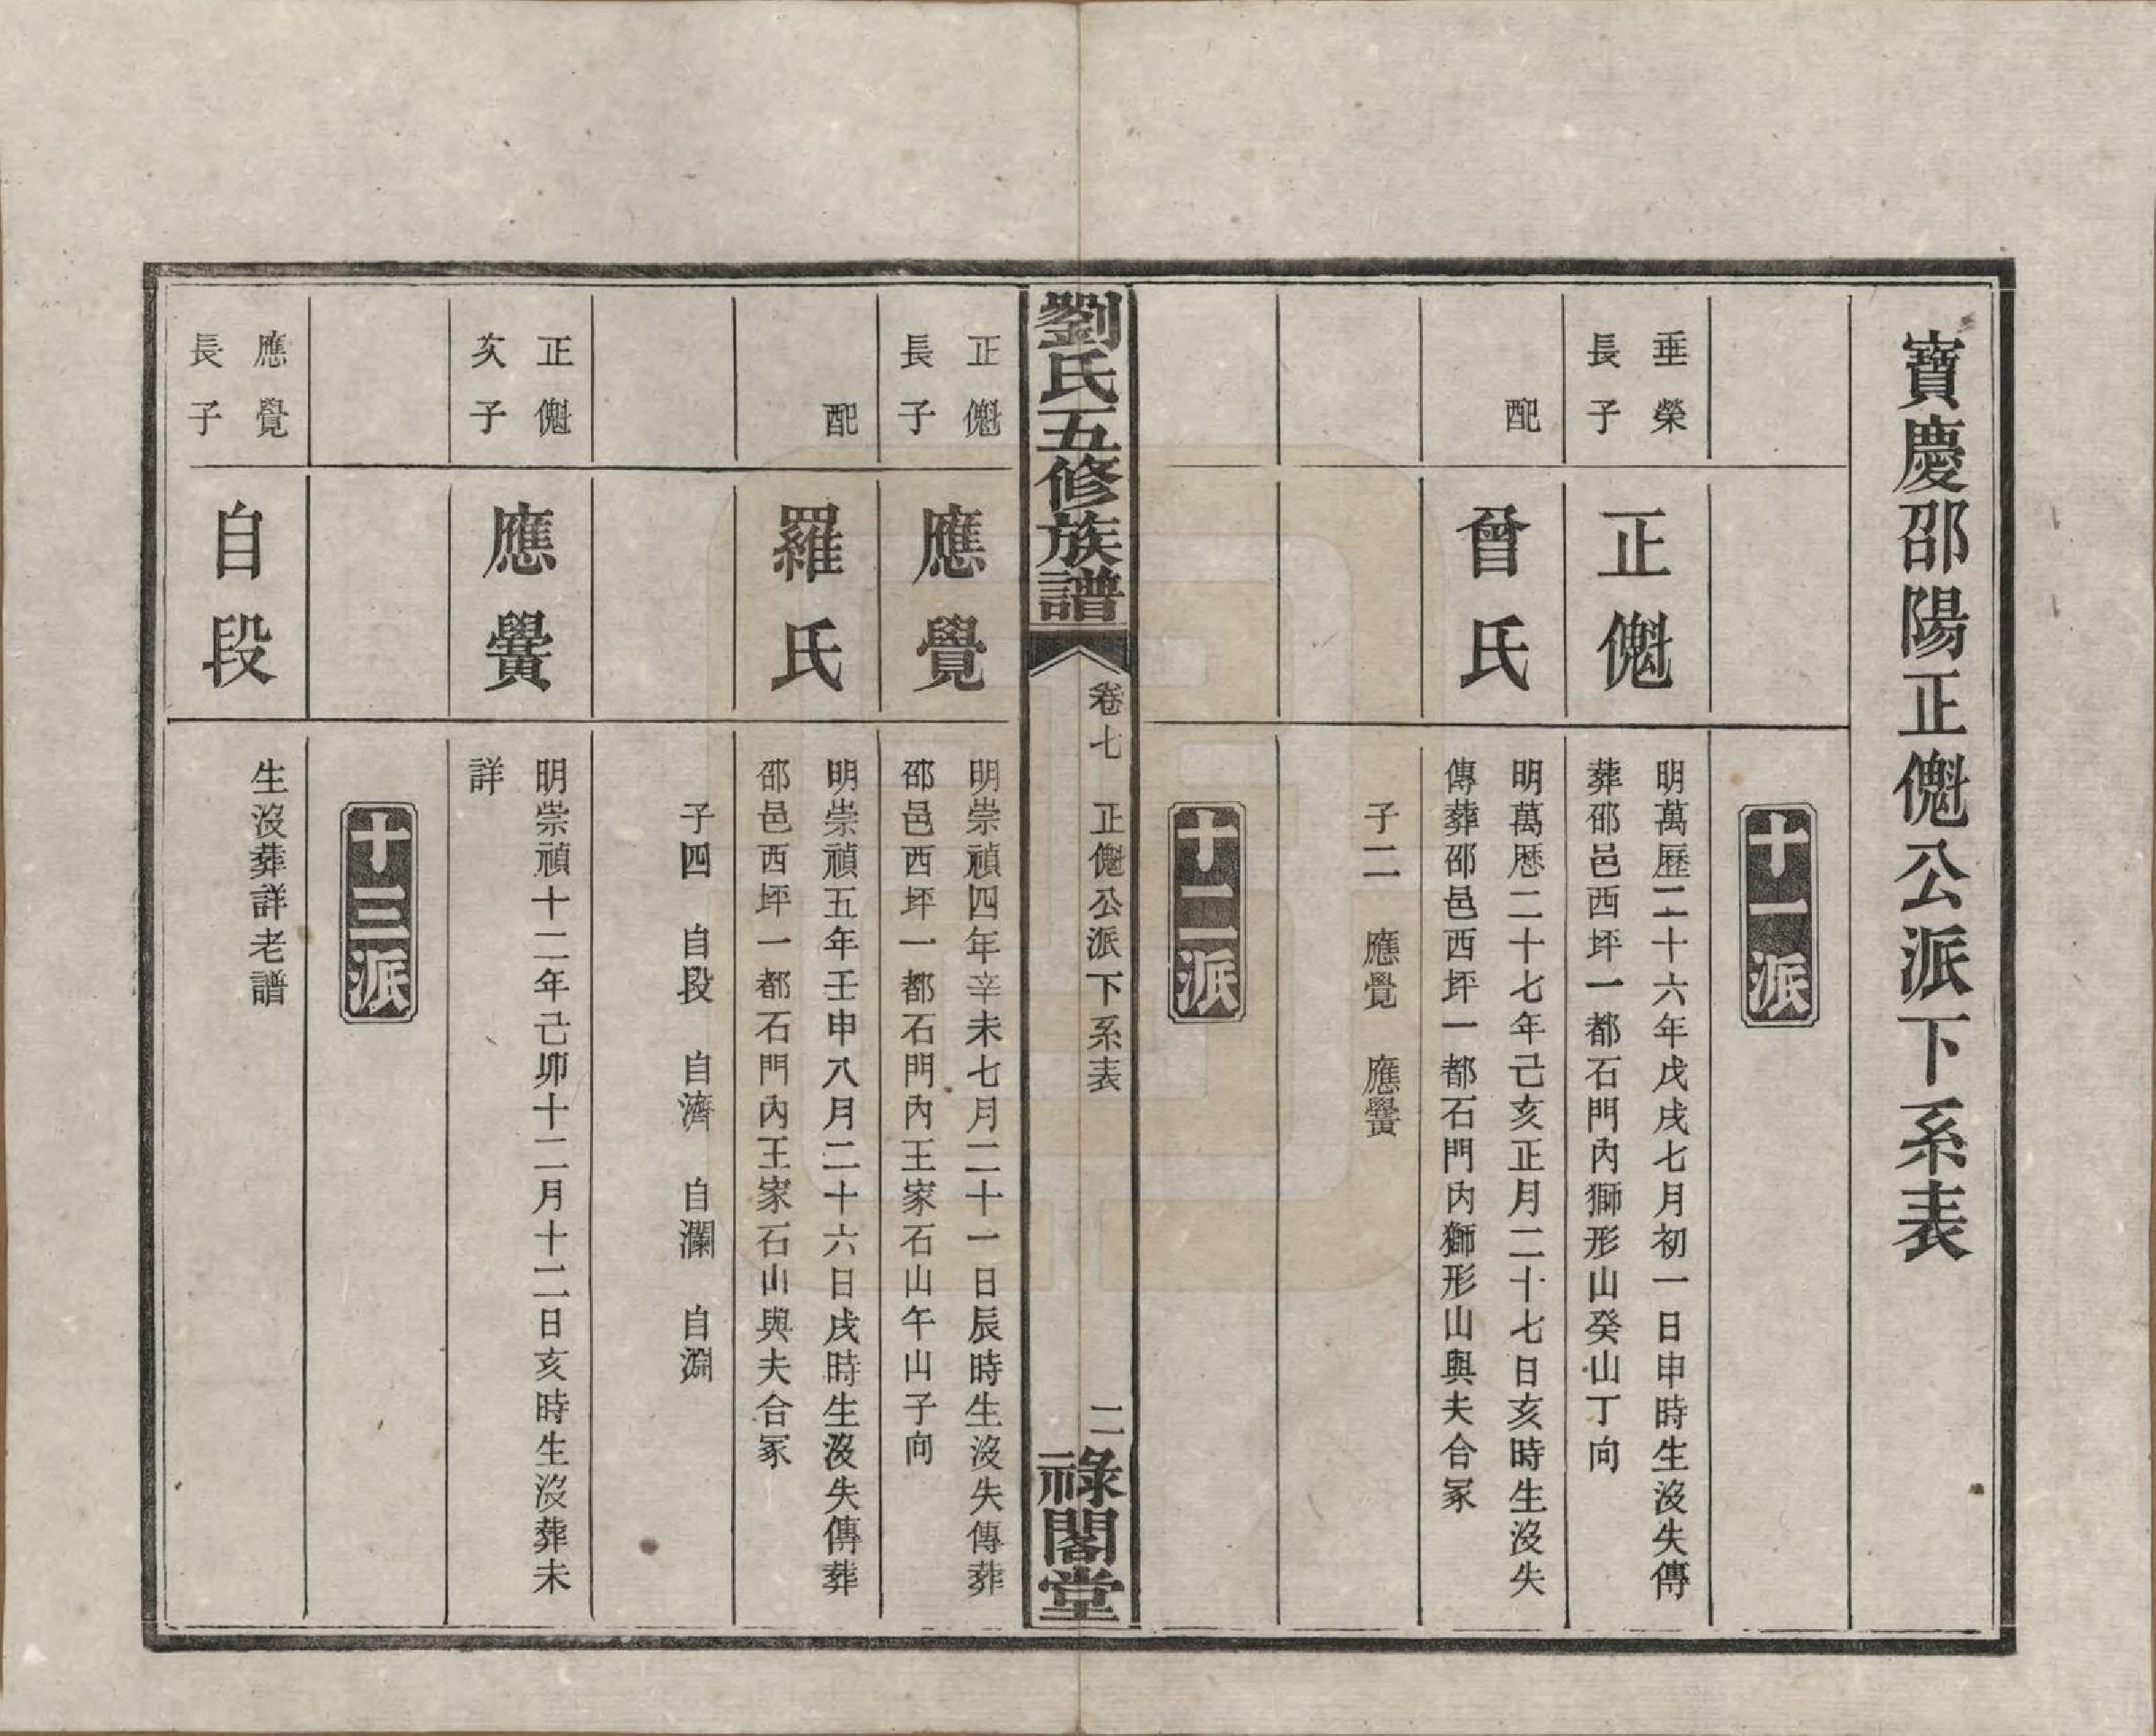 寶慶邵陽正傀公派下系表
十一派
垂榮
長子
正傀
明萬歷二十六年戊戌七月初一日申時生沒失傳
葬邵邑西坪一都石門內獅形山癸山丁向
配
曾氏
明萬歷二十七年己亥正月二十七日亥時生沒失
傳葬邵邑西坪一都石門內獅形山與夫合冢
子二 應覺 應黌
十二派
劉氏五修族譜
卷七 正傀公派下系表
二
祿閣堂
正傀
長子
應覺
明崇禎四年辛未七月二十一日辰時生沒失傳葬
邵邑西坪一都石門內王家石山午山子向
配
羅氏
明崇禎五年壬申八月二十六日戌時生沒失傳葬
邵邑西坪一都石門內王家石山與夫合冢
子四 自段 自濟 自瀾 自淵
正傀
次子
應黌
明崇禎十二年己卯十二月十二日亥時生沒葬未
詳
十三派
應覺
長子
自段
生沒葬詳老譜